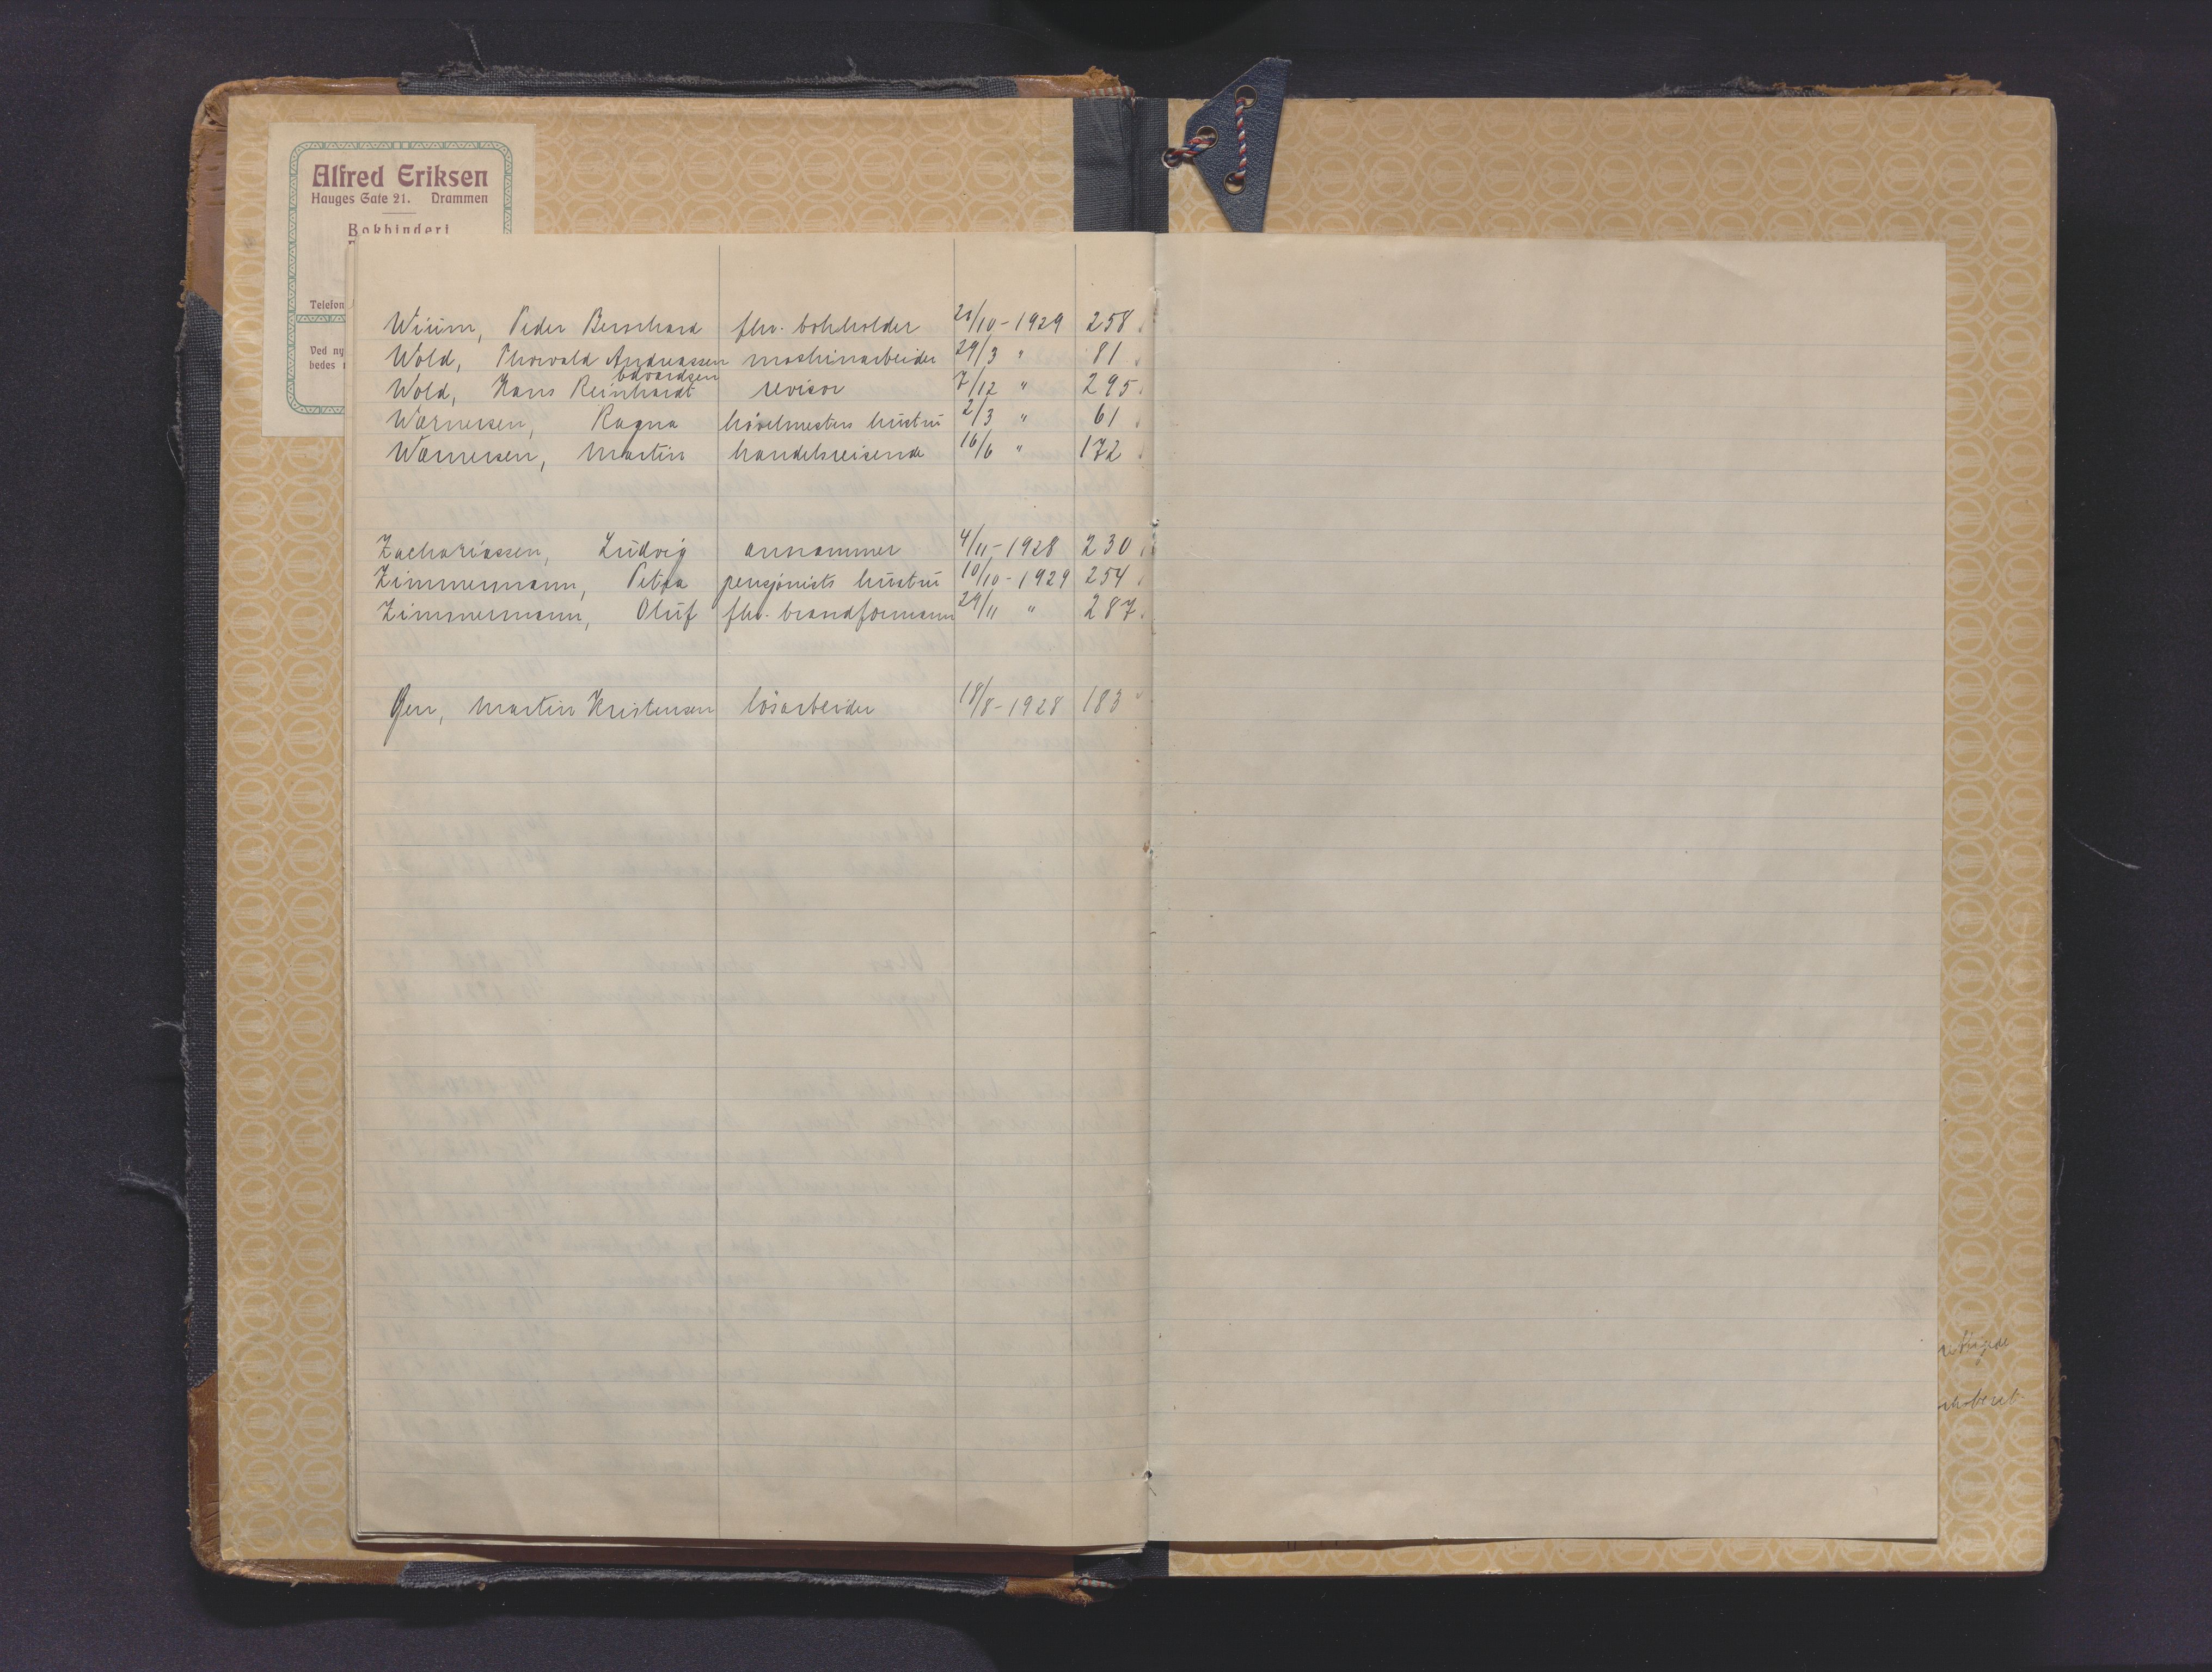 Alfred Eriksen
Hauges Gate 21. Drammen
Bokbinderi
Telefon
Ved ny
bedes
Wiium, Peder Bernhard fhv. bokholder 20/10-1929 258.
Wold, Thorvald Andreassen maskinarbeider 29/3 " 81.
Edvardsen
Wold, Hans Reinhardt revisor 7/12 " 295.
Wærnersen, Ragna hövelmesters hustru 2/3 " 61.
Wærnersen, Martin handelsreisende 16/6 " 172.
Zachariassen, Ludvig annammer 4/11-1928 230.
Zimmermann, Petra pensjonists hustru 10/10-1929 254.
Zimmermann, Oluf fhv. brandformann 29/11 " 287.
Øen, Martin Kristensen lösarbeider 18/8-1928 183